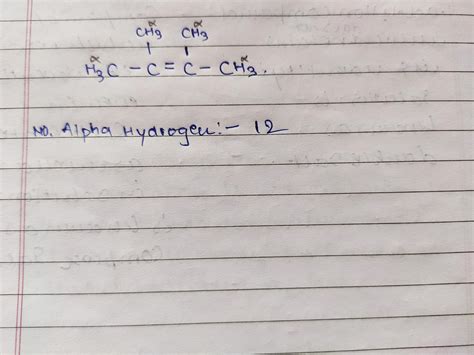 α α
CH3 CH3
α α
H3C - C = C - CH3.
No. Alpha Hydrogen:- 12